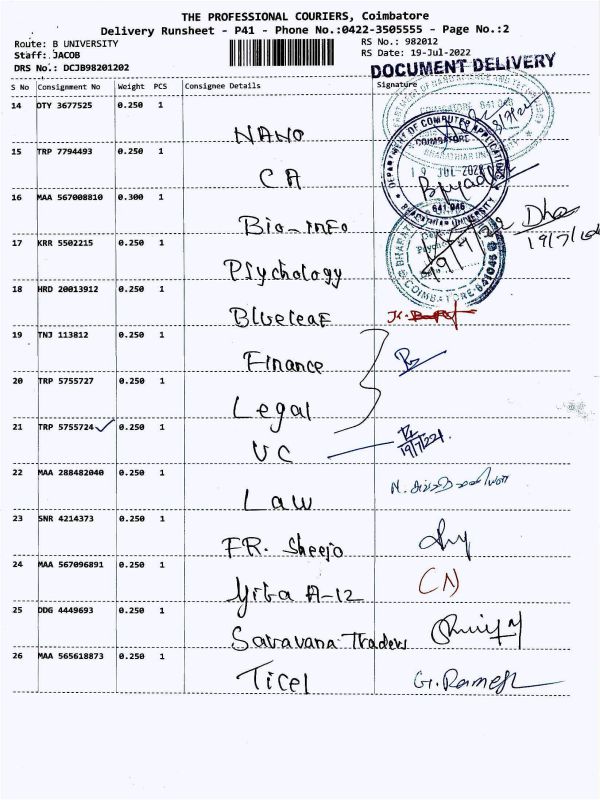 THE PROFESSIONAL COURIERS, Coimbatore
Delivery Runsheet - P41 - Phone No.:0422-3505555 - Page No.:2
Route: B UNIVERSITY
Staff: JACOB
DRS No.: DCJB98201202
RS No.: 982012
RS Date: 19-Jul-2022
DOCUMENT DELIVERY
S No Consignment No Weight PCS Consignee Details Signature
14 DTY 3677525 0.250 1
NANO
15 TRP 7794493 0.250 1
CA
DEPARTMENT OF COMPUTER APPLICATIONS
COIMBATORE
19 JUL 2022
641 046
BHARATHIAR UNIVERSITY
16 MAA 567008810 0.300 1
Bio-info
19/7/22
17 KRR 5502215 0.250 1
Psychology
COIMBATORE 641046
18 HRD 20013912 0.250 1
Blueleaf
19 TNJ 113812 0.250 1
Finance
20 TRP 5755727 0.250 1
Legal
21 TRP 5755724 0.250 1
VC
22 MAA 288482040 0.250 1
Law
23 SNR 4214373 0.250 1
FR. Sheejo
24 MAA 567096891 0.250 1
A-12
25 DDG 4449693 0.250 1
Saravana Traders
26 MAA 565618873 0.250 1
Ticel G. Ramesh